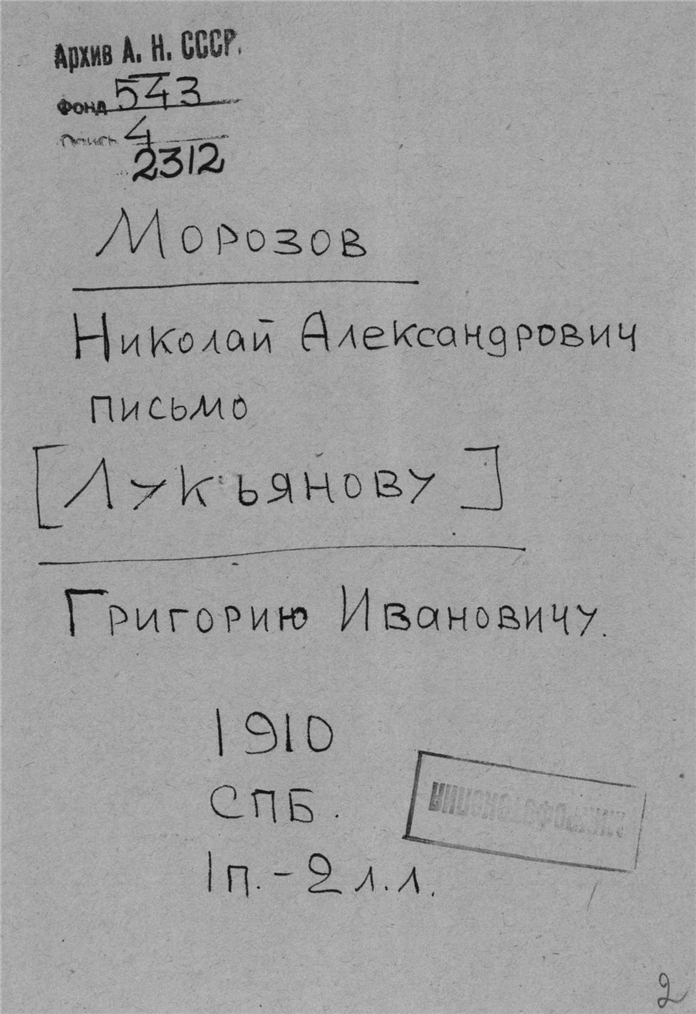 Архив А. Н. СССР.
Фонд 543
Опись 4
2312
Морозов
Николай Александрович
письмо
[Лукьянову]
Григорию Ивановичу.
1910
СПБ.
1п.-2 л.л.
МИКРОФОТОКОПИЯ
2